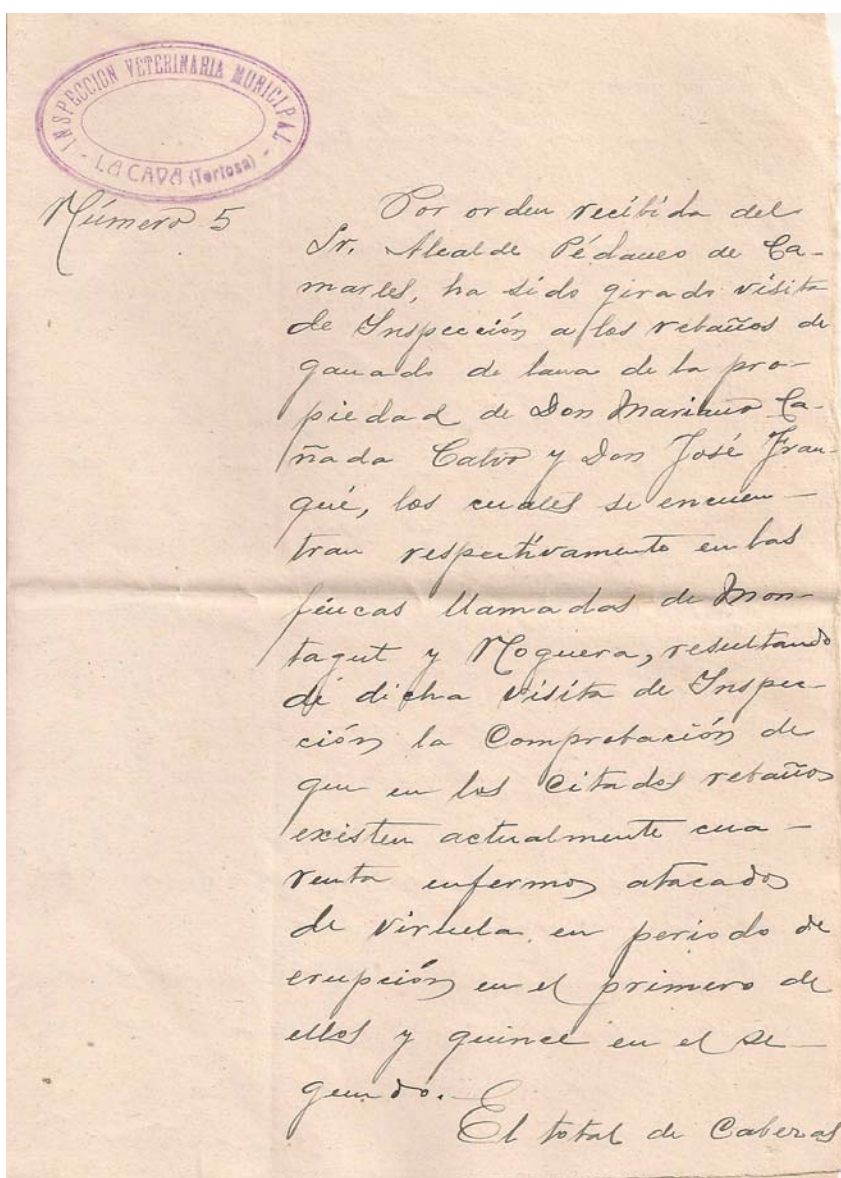 INSPECCION VETERINARIA MUNICIPAL
- LA CAVA (Tortosa) -
Número 5
Por orden recibida del
Sr. Alcalde Pédaneo de Ca-
marles, ha sido girado visita
de Inspección a los rebaños de
ganado de lana de la pro-
piedad de Don Mariano Ca-
ñada Calvo y Don José Fran-
qué, los cuales se encuen-
tran respectivamente en las
fincas llamadas de Mon-
tagut y Noguera, resultando
de dicha visita de Inspec-
ción la Comprobación de
que en los Citados rebaños
existen actualmente cua-
renta enfermos atacados
de viruela en periodo de
erupción en el primero de
ellos y quince en el se-
gundo.
El total de Cabezas